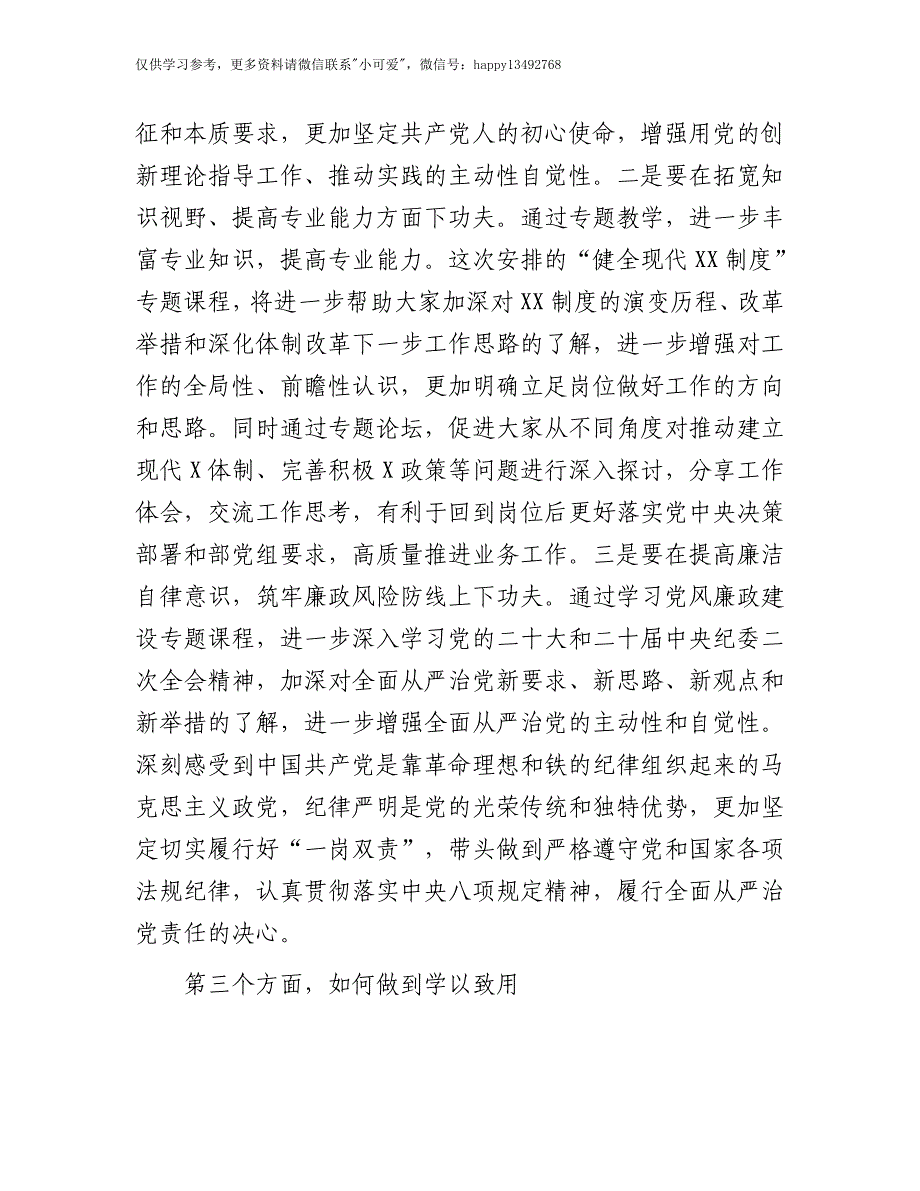 仅供学习参考，更多资料请微信联系"小可爱"，微信号：happy13492768
征和本质要求，更加坚定共产党人的初心使命，增强用党的创
新理论指导工作、推动实践的主动性自觉性。二是要在拓宽知
识视野、提高专业能力方面下功夫。通过专题教学，进一步丰
富专业知识，提高专业能力。这次安排的“健全现代 XX 制度”
专题课程，将进一步帮助大家加深对 XX 制度的演变历程、改革
举措和深化体制改革下一步工作思路的了解，进一步增强对工
作的全局性、前瞻性认识，更加明确立足岗位做好工作的方向
和思路。同时通过专题论坛，促进大家从不同角度对推动建立
现代 X 体制、完善积极 X 政策等问题进行深入探讨，分享工作
体会，交流工作思考，有利于回到岗位后更好落实党中央决策
部署和部党组要求，高质量推进业务工作。三是要在提高廉洁
自律意识，筑牢廉政风险防线上下功夫。通过学习党风廉政建
设专题课程，进一步深入学习党的二十大和二十届中央纪委二
次全会精神，加深对全面从严治党新要求、新思路、新观点和
新举措的了解，进一步增强全面从严治党的主动性和自觉性。
深刻感受到中国共产党是靠革命理想和铁的纪律组织起来的马
克思主义政党，纪律严明是党的光荣传统和独特优势，更加坚
定切实履行好“一岗双责”，带头做到严格遵守党和国家各项
法规纪律，认真贯彻落实中央八项规定精神，履行全面从严治
党责任的决心。
第三个方面，如何做到学以致用